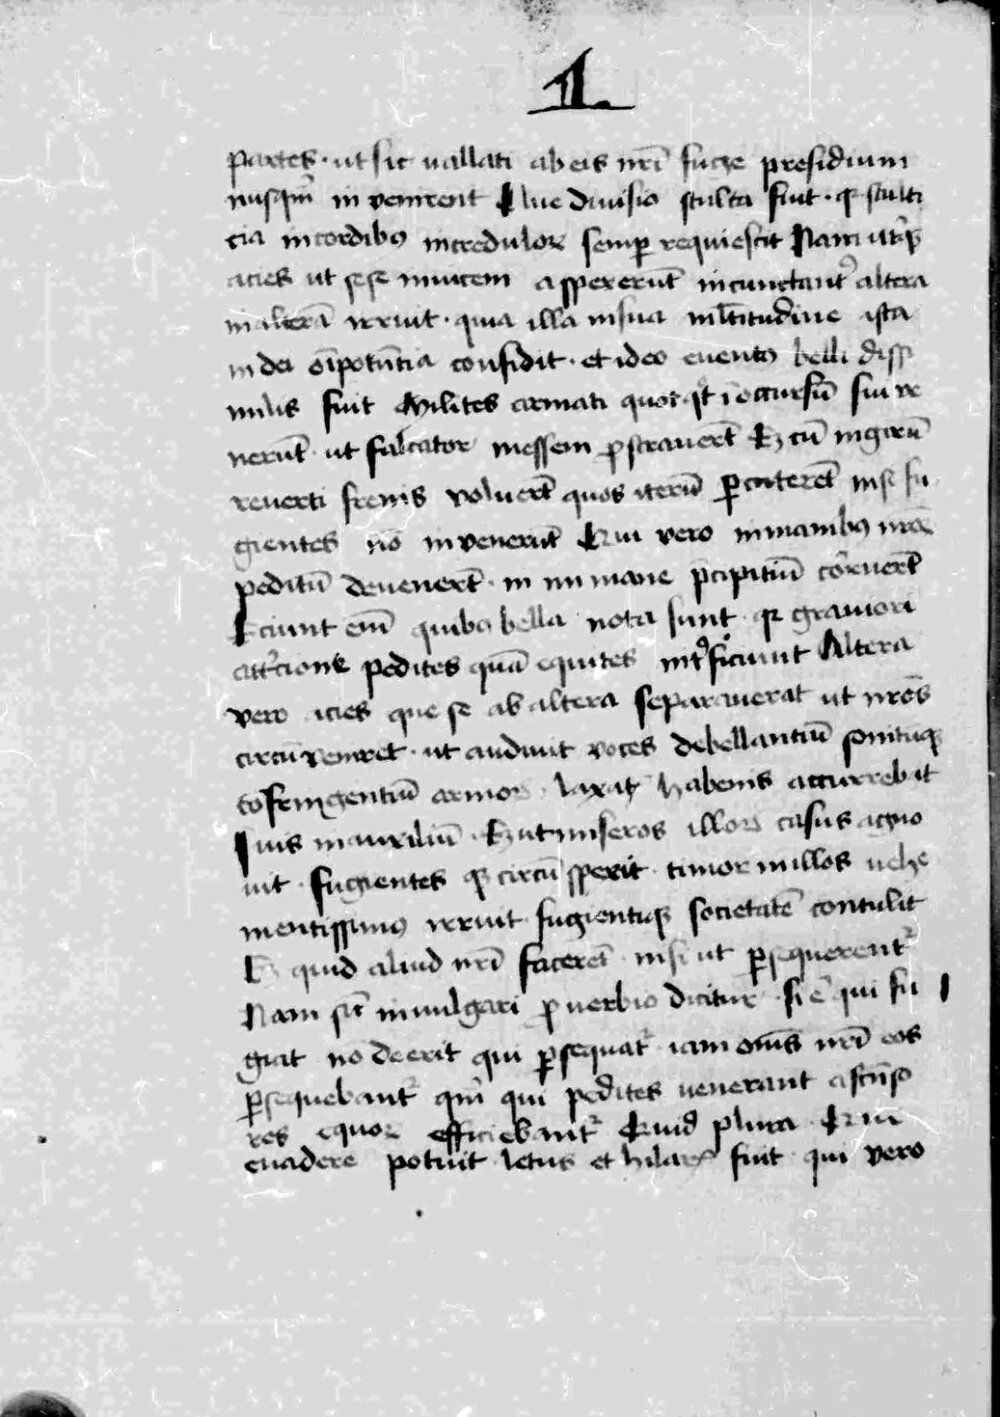 1
partes · ut sic uallati ab eis nr̄i fuge presidium
nusqm̄ in venirent Que diuisio stulta fuit · q̄ stulti
cia in cordibꝰ incredulorꝝ semꝑ requiescit Nam utͣqꝫ
acies ut sese inuicem aspexerūt incunctantˀ altera
in alterā irruit · quia illa in sua ml̄titudine ista
in dei oīpotn̄tia confidit · et ideo euentꝰ belli dissi
milis fuit Milites armati quotqͦt ī occursū sui ve
nerūt ut falcator messem ꝓstrauerēt Et cū in girū
reuerti frenis voluerēt quos iterū ꝑcuterēt nisi fu
gientes nō invenerūt Qui vero in manibꝰ nr̄oꝝ
peditū deuenerēt · in inmane p̄cipitiū corruerēt
Sciunt em̄ quibꝰ bella nota sunt · qꝛ grauiori
att̄cione pedites quā equites int̓ficiunt Altera
vero acies que se ab altera separauerat ut nr̄os
circūveniret · ut audiuit voces debellantiū sonitūqꝫ
cōfringentiū armorꝝ laxatꝭ habenis accurrebat
suis in auxiliū · Et ut miseros illorꝝ casus agno
uit · fugientes qꝫ circūspexit · timor in illos uehe
mentissimꝰ irruit · fugientiqꝫ societatē contulit
Et quid aliud nr̄i facerēt · nisi ut ꝑsequerentˀ
Nam sic̄ in uulgari ꝓuerbio dicitur · si ē qui fu
giat no deerit qui ꝑsequatˀ iam om̄s nr̄i eos
ꝑsequebantˀ qm̄ qui pedites venerant ascēso
res equorꝝ efficiebantˀ Quid plura Qui
euadere potuit letus et hilaris fuit · qui vero